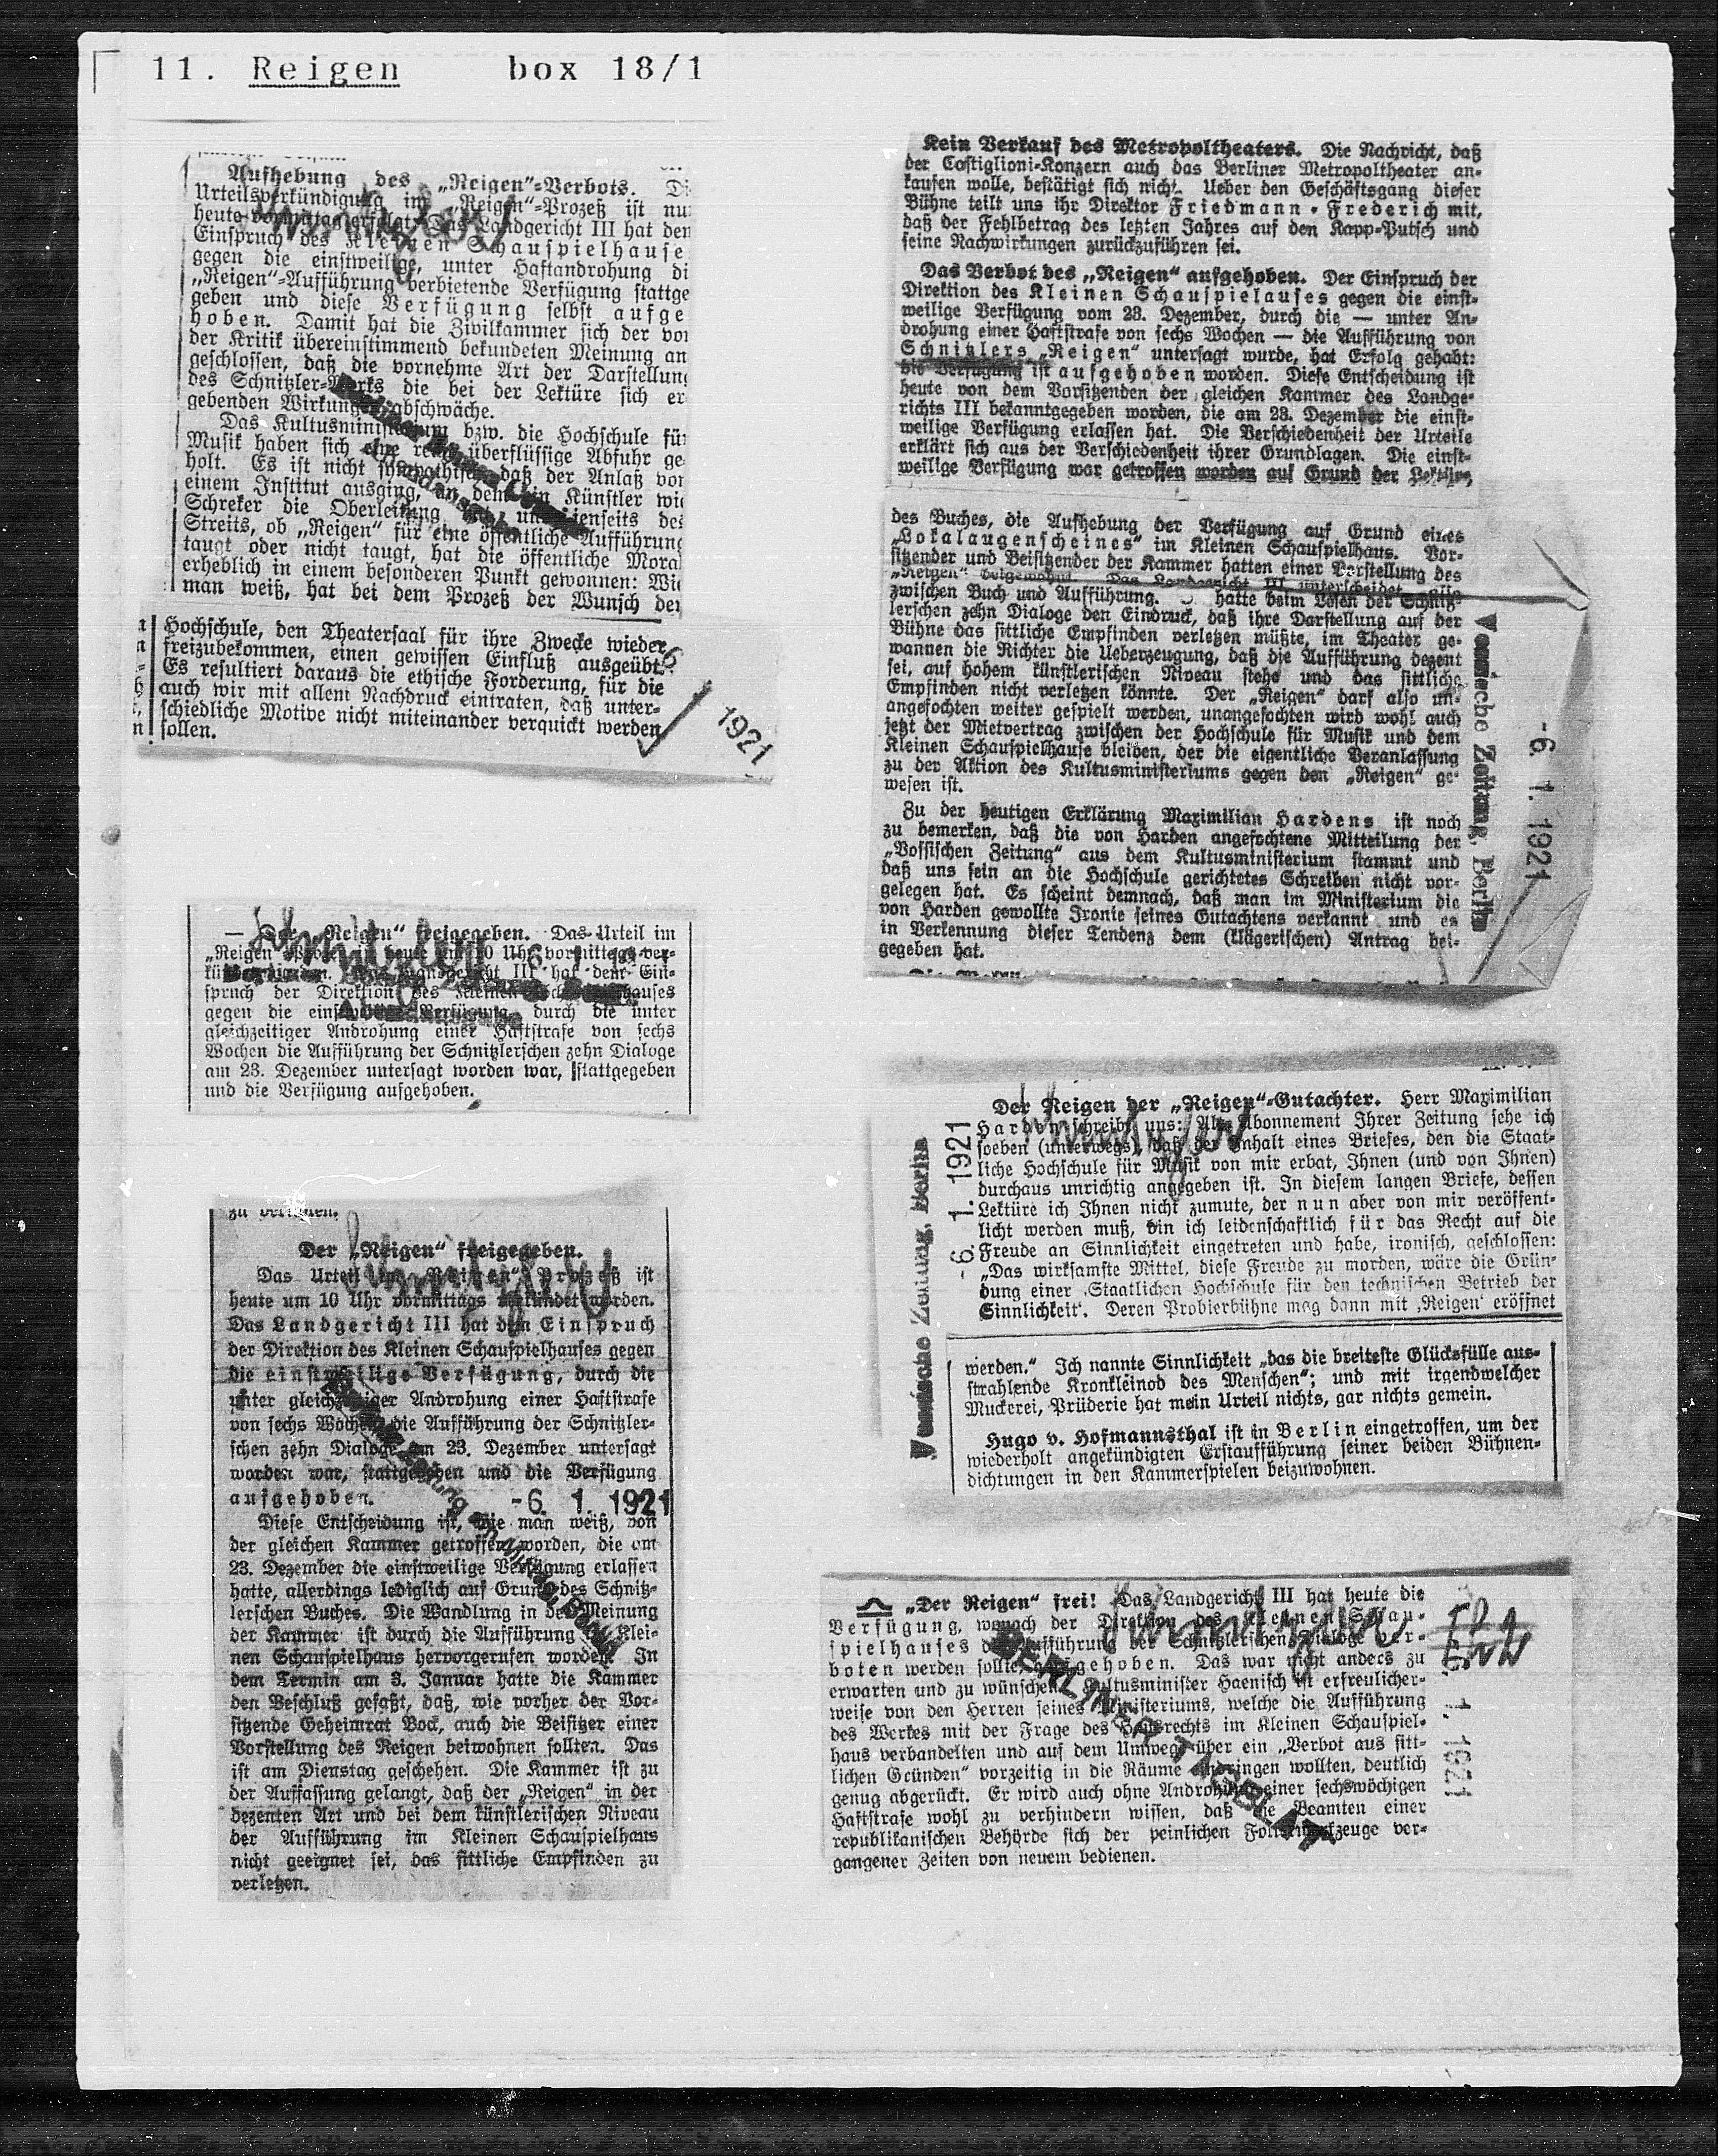 11. Reigen box 18/1
Aufhebung des „Reigen“-Verbots. Di
Urteilsverkündigung im „Reigen“-Prozeß ist nu
heute vormittag erfolgt. Das Landgericht III hat den
Einspruch des Kleinen Schauspielhause
gegen die einstweilige, unter Haftandrohung di
„Reigen“-Aufführung verbietende Verfügung stattge
geben und diese Verfügung selbst aufge
hoben. Damit hat die Zivilkammer sich der vor
der Kritik übereinstimmend bekundeten Meinung an
geschlossen, daß die vornehme Art der Darstellung
des Schnitzler-Werks die bei der Lektüre sich er
gebenden Wirkungen abschwäche.
Das Kultusministerium bzw. die Hochschule für
Musik haben sich eine recht überflüssige Abfuhr ge
holt. Es ist nicht sympathisch, daß der Anlaß von
einem Institut ausging, an dem ein Künstler wie
Schreker die Oberleitung hat, und jenseits des
Streits, ob „Reigen“ für eine öffentliche Aufführung
taugt oder nicht taugt, hat die öffentliche Moral
erheblich in einem besonderen Punkt gewonnen: Wie
man weiß, hat bei dem Prozeß der Wunsch der
Hochschule, den Theatersaal für ihre Zwecke wieder
freizubekommen, einen gewissen Einfluß ausgeübt.
Es resultiert daraus die ethische Forderung, für die
auch wir mit allem Nachdruck eintraten, daß unter-
schiedliche Motive nicht miteinander verquickt werden
sollen.
1921
— Der „Reigen“ freigegeben. Das Urteil im
„Reigen“-Prozeß ist heute um 10 Uhr vormittags ver-
kündet worden. Das Landgericht III hat dem Ein-
spruch der Direktion des Kleinen Schauspielhauses
gegen die einstweilige Verfügung, durch die unter
gleichzeitiger Androhung einer Haftstrafe von sechs
Wochen die Aufführung der Schnitzlerschen zehn Dialoge
am 23. Dezember untersagt worden war, stattgegeben
und die Verfügung aufgehoben.
Der „Reigen“ freigegeben.
Das Urteil im „Reigen“-Prozeß ist
heute um 10 Uhr vormittags verkündet worden.
Das Landgericht III hat dem Einspruch
der Direktion des Kleinen Schauspielhauses gegen
die einstweilige Verfügung, durch die
unter gleichzeitiger Androhung einer Haftstrafe
von sechs Wochen die Aufführung der Schnitzler-
schen zehn Dialoge am 23. Dezember untersagt
worden war, stattgegeben und die Verfügung
aufgehoben.
-6. 1. 1921
Diese Entscheidung ist, wie man weiß, von
der gleichen Kammer getroffen worden, die am
23. Dezember die einstweilige Verfügung erlassen
hatte, allerdings lediglich auf Grund des Schnitz-
lerschen Buches. Die Wandlung in der Meinung
der Kammer ist durch die Aufführung im Klei-
nen Schauspielhaus hervorgerufen worden. In
dem Termin am 3. Januar hatte die Kammer
den Beschluß gefaßt, daß, wie vorher der Vor-
sitzende Geheimrat Bock, auch die Beisitzer einer
Vorstellung des Reigen beiwohnen sollten. Das
ist am Dienstag geschehen. Die Kammer ist zu
der Auffassung gelangt, daß der „Reigen“ in der
dezenten Art und bei dem künstlerischen Niveau
der Aufführung im Kleinen Schauspielhaus
nicht geeignet sei, das sittliche Empfinden zu
verletzen.
Kein Verkauf des Metropoltheaters. Die Nachricht, daß
der Castiglioni-Konzern auch das Berliner Metropoltheater an-
kaufen wolle, bestätigt sich nicht. Ueber den Geschäftsgang dieser
Bühne teilt uns ihr Direktor Friedmann-Frederich mit,
daß der Fehlbetrag des letzten Jahres auf den Kapp-Putsch und
seine Nachwirkungen zurückzuführen sei.
Das Verbot des „Reigen“ aufgehoben. Der Einspruch der
Direktion des Kleinen Schauspielauses gegen die einst-
weilige Verfügung vom 23. Dezember, durch die — unter An-
drohung einer Haftstrafe von sechs Wochen — die Aufführung von
Schnitzlers „Reigen“ untersagt wurde, hat Erfolg gehabt:
die Verfügung ist aufgehoben worden. Diese Entscheidung ist
heute von dem Vorsitzenden der gleichen Kammer des Landge-
richts III bekanntgegeben worden, die am 23. Dezember die einst-
weilige Verfügung erlassen hat. Die Verschiedenheit der Urteile
erklärt sich aus der Verschiedenheit ihrer Grundlagen. Die einst-
weilige Verfügung war getroffen worden auf Grund der Lektüre
des Buches, die Aufhebung der Verfügung auf Grund eines
„Lokalaugenscheines“ im Kleinen Schauspielhaus. Vor-
sitzender und Beisitzender der Kammer hatten einer Vorstellung des
„Reigen“ beigewohnt. Das Landgericht III unterscheidet
zwischen Buch und Aufführung. hatte beim Lesen der Schnitz-
lerschen zehn Dialoge den Eindruck, daß ihre Darstellung auf der
Bühne das sittliche Empfinden verletzen müßte, im Theater ge-
wannen die Richter die Ueberzeugung, daß die Aufführung dezent
sei, auf hohem künstlerischen Niveau stehe und das sittliche
Empfinden nicht verletzen könnte. Der „Reigen“ darf also un-
angefochten weiter gespielt werden, unangefochten wird wohl auch
jetzt der Mietvertrag zwischen der Hochschule für Musik und dem
Kleinen Schauspielhause bleiben, der die eigentliche Veranlassung
zu der Aktion des Kultusministeriums gegen den „Reigen“ ge-
wesen ist.
Zu der heutigen Erklärung Maximilian Hardens ist noch
zu bemerken, daß die von Harden angefochtene Mitteilung der
„Vossischen Zeitung“ aus dem Kultusministerium stammt und
daß uns sein an die Hochschule gerichtetes Schreiben nicht vor-
gelegen hat. Es scheint demnach, daß man im Ministerium die
von Harden gewollte Ironie seines Gutachtens verkannt und es
in Verkennung dieser Tendenz dem (klägerischen) Antrag bei-
gegeben hat.
Vossische Zeitung, Berlin
-6. 1. 1921
Der Reigen der „Reigen“-Gutachter. Herr Maximilian
Harden schreibt uns: Als Abonnement Ihrer Zeitung sehe ich
soeben (unterwegs), daß der Inhalt eines Briefes, den die Staat-
liche Hochschule für Musik von mir erbat, Ihnen (und von Ihnen)
durchaus unrichtig angegeben ist. In diesem langen Briefe, dessen
Lektüre ich Ihnen nicht zumute, der nun aber von mir veröffent-
licht werden muß, bin ich leidenschaftlich für das Recht auf die
Freude an Sinnlichkeit eingetreten und habe, ironisch, geschlossen:
„Das wirksamste Mittel, diese Freude zu morden, wäre die Grün-
dung einer ‚Staatlichen Hochschule für den technischen Betrieb der
Sinnlichkeit‘. Deren Probierbühne mag dann mit ‚Reigen‘ eröffnet
werden.“ Ich nannte Sinnlichkeit „das die breiteste Glücksfülle aus-
strahlende Kronkleinod des Menschen“; und mit irgendwelcher
Muckerei, Prüderie hat mein Urteil nichts, gar nichts gemein.
Hugo v. Hofmannsthal ist in Berlin eingetroffen, um der
wiederholt angekündigten Erstaufführung seiner beiden Bühnen-
dichtungen in den Kammerspielen beizuwohnen.
Vossische Zeitung, Berlin
-6. 1. 1921
„Der Reigen“ frei! Das Landgericht III hat heute die
Verfügung, wonach der Direktion des Kleinen Schau-
spielhauses die Aufführung der Schnitzlerschen Dialoge ver-
boten werden sollte, aufgehoben. Das war nicht anders zu
erwarten und zu wünschen. Kultusminister Haenisch ist erfreulicher-
weise von den Herren seines Ministeriums, welche die Aufführung
des Werkes mit der Frage des Hausrechts im Kleinen Schauspiel-
haus verbandelten und auf dem Umweg über ein „Verbot aus sitt-
lichen Gründen“ vorzeitig in die Räume eindringen wollten, deutlich
genug abgerückt. Er wird auch ohne Androhung einer sechswöchigen
Haftstrafe wohl zu verhindern wissen, daß die Beamten einer
republikanischen Behörde sich der peinlichen Folterwerkzeuge ver-
gangener Zeiten von neuem bedienen.
BERLINER TAGEBLATT
6. 1. 1921